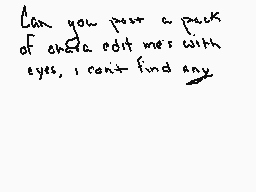 Can you post a pack
of chara edit me's with
eyes, i can't find any